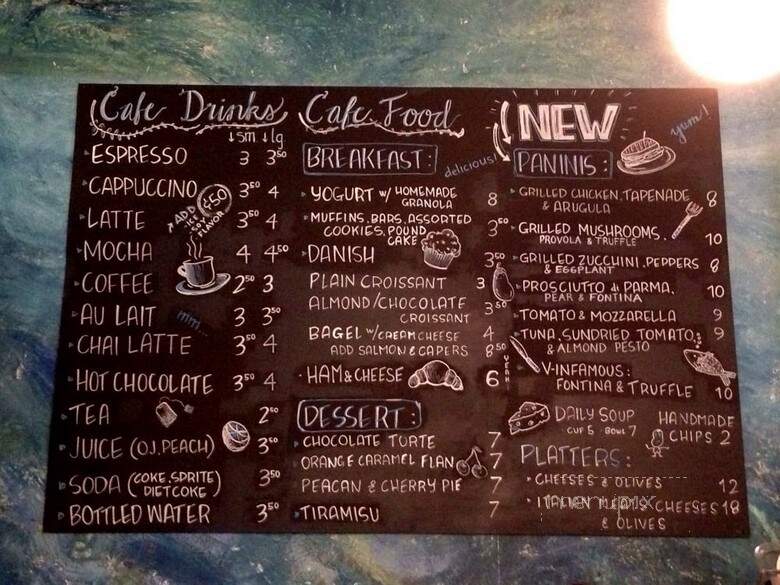 Cafe Drinks
↓sm ↓lg
ESPRESSO 3 3⁵⁰
CAPPUCCINO 3⁵⁰ 4
ADD ICE SOY FLAVOR ¢50
LATTE 3⁵⁰ 4
MOCHA 4 4⁵⁰
COFFEE 2⁵⁰ 3
AU LAIT 3 3⁵⁰
mm...
CHAI LATTE 3⁵⁰ 4
HOT CHOCOLATE 3⁵⁰ 4
TEA 2⁵⁰
JUICE (OJ, PEACH) 3⁵⁰
SODA (COKE, SPRITE 3⁵⁰
DIET COKE)
BOTTLED WATER 3⁵⁰
Cafe Food
BREAKFAST:
delicious!
YOGURT W/ HOMEMADE
GRANOLA 8
MUFFINS, BARS, ASSORTED 3⁵⁰
COOKIES, POUND
CAKE
DANISH 3⁵⁰
PLAIN CROISSANT 3
ALMOND/CHOCOLATE 3⁵⁰
CROISSANT
BAGEL W/ CREAM CHEESE 4
ADD SALMON & CAPERS 8⁵⁰
HAM & CHEESE 6
YEAH!
DESSERT:
CHOCOLATE TORTE 7
ORANGE CARAMEL FLAN 7
PEACAN & CHERRY PIE 7
TIRAMISU 7
NEW
yum!
PANINIS:
GRILLED CHICKEN, TAPENADE 8
& ARUGULA
GRILLED MUSHROOMS,
PROVOLA & TRUFFLE 10
GRILLED ZUCCHINI, PEPPERS 8
& EGGPLANT
PROSCIUTTO di PARMA, 10
PEAR & FONTINA
TOMATO & MOZZARELLA 9
TUNA, SUNDRIED TOMATO 9
& ALMOND PESTO
V-INFAMOUS:
FONTINA & TRUFFLE 10
DAILY SOUP
CUP 5 BOWL 7
HANDMADE
CHIPS 2
PLATTERS:
CHEESES & OLIVES 12
ITALIAN MEATS, CHEESES 18
& OLIVES
menupix